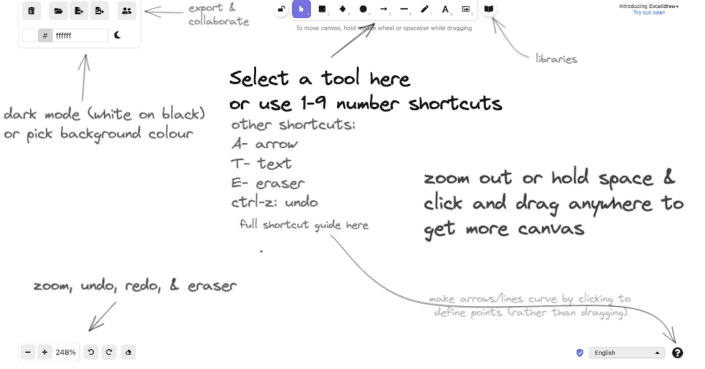 export &
collaborate
Introducing Excalidraw+
Try out now!
# ffffff
To move canvas, hold mouse wheel or spacebar while dragging
libraries
Select a tool here
or use 1-9 number shortcuts
dark mode (white on black)
or pick background colour
other shortcuts:
A- arrow
T- text
E- eraser
ctrl-z: undo
full shortcut guide here
zoom out or hold space &
click and drag anywhere to
get more canvas
zoom, undo, redo, & eraser
make arrows/lines curve by clicking to
define points (rather than dragging)
- + 248%
English
?